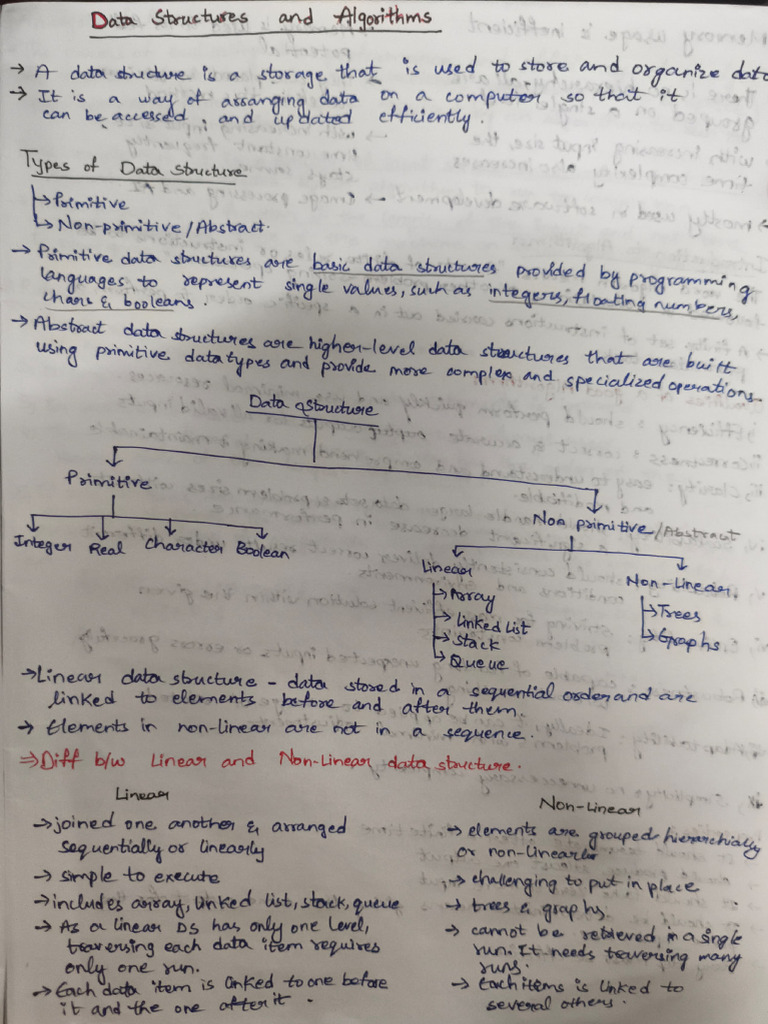 Data Structures and Algorithms
→ A data structure is a storage that is used to store and organize data
→ It is a way of arranging data on a computer so that it
can be accessed and updated efficiently.
Types of Data Structure
↳ Primitive
↳ Non-primitive / Abstract.
→ Primitive data structures are basic data structures provided by programming
languages to represent single values, such as integers, floating numbers,
chars & booleans.
→ Abstract data structures are higher-level data structures that are built
using primitive datatypes and provide more complex and specialized operations.
Data Structure
Primitive
Non primitive / Abstract
Integer Real Character Boolean
Linear
Non-Linear.
→ Array
→ Linked List
→ Stack
→ Queue
→ Trees
→ Graphs
→ Linear data structure - data stored in a sequential order and are
linked to elements before and after them.
→ Elements in non-linear are not in a sequence.
⇒ Diff b/w Linear and Non-Linear data structure.
Linear
→ joined one another & arranged
sequentially or linearly
→ simple to execute
→ includes array, linked list, stack, queue
→ As a linear DS has only one level,
traversing each data item requires
only one run.
→ Each data item is linked to one before
it and the one after it.
Non-Linear
→ elements are grouped hierarchially
or non-linearly.
→ challenging to put in place
→ trees & graphs.
→ cannot be retrieved in a single
run. It needs traversing many
runs.
→ Each items is linked to
several others.